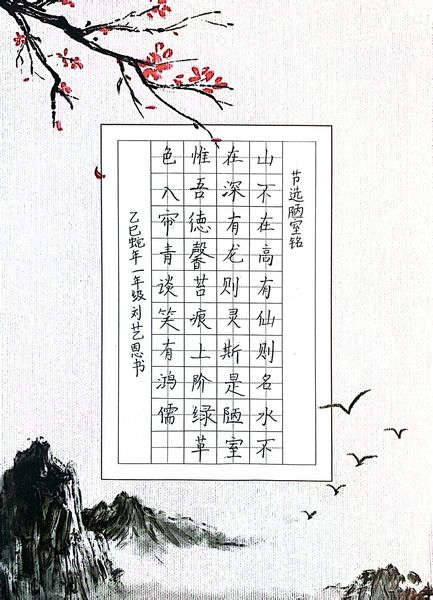 节选陋室铭
山不在高有仙则名水不
在深有龙则灵斯是陋室
惟吾德馨苔痕上阶绿草
色入帘青谈笑有鸿儒
乙巳蛇年一年级刘艺恩书